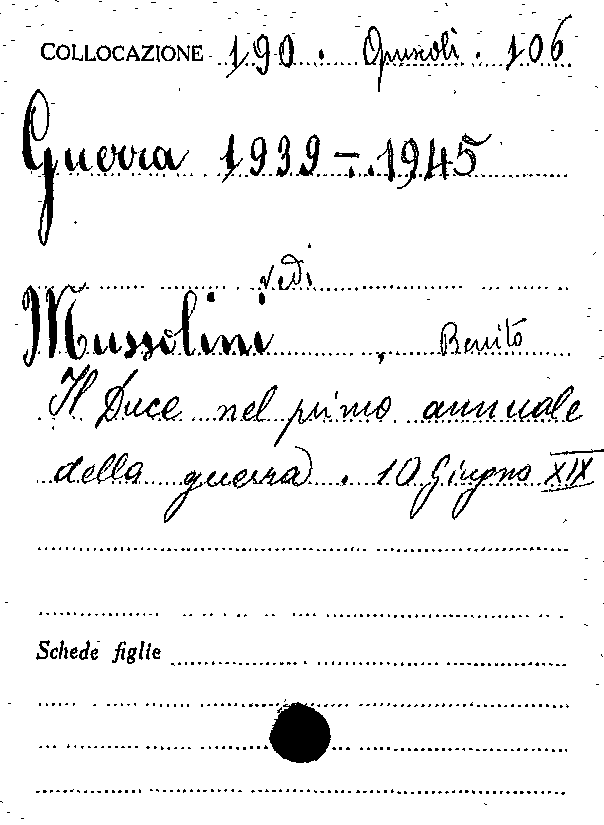 COLLOCAZIONE 190. Opuscoli. 106
Guerra 1939-1945
vedi
Mussolini, Benito
Il Duce nel primo annuale
della guerra. 10 Giugno XIX
Schede figlie